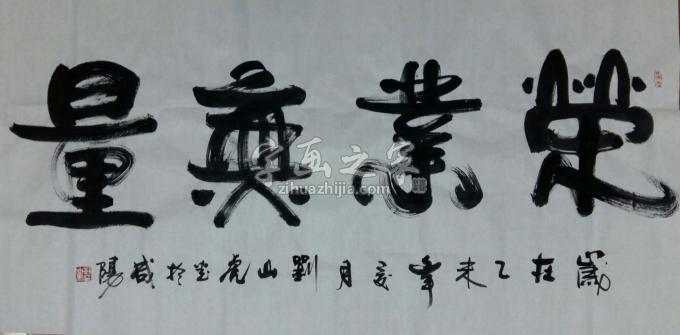 榮業無量
字画之家
zihuazhijia.com
歲在乙未年夏月劉山虎书於咸陽